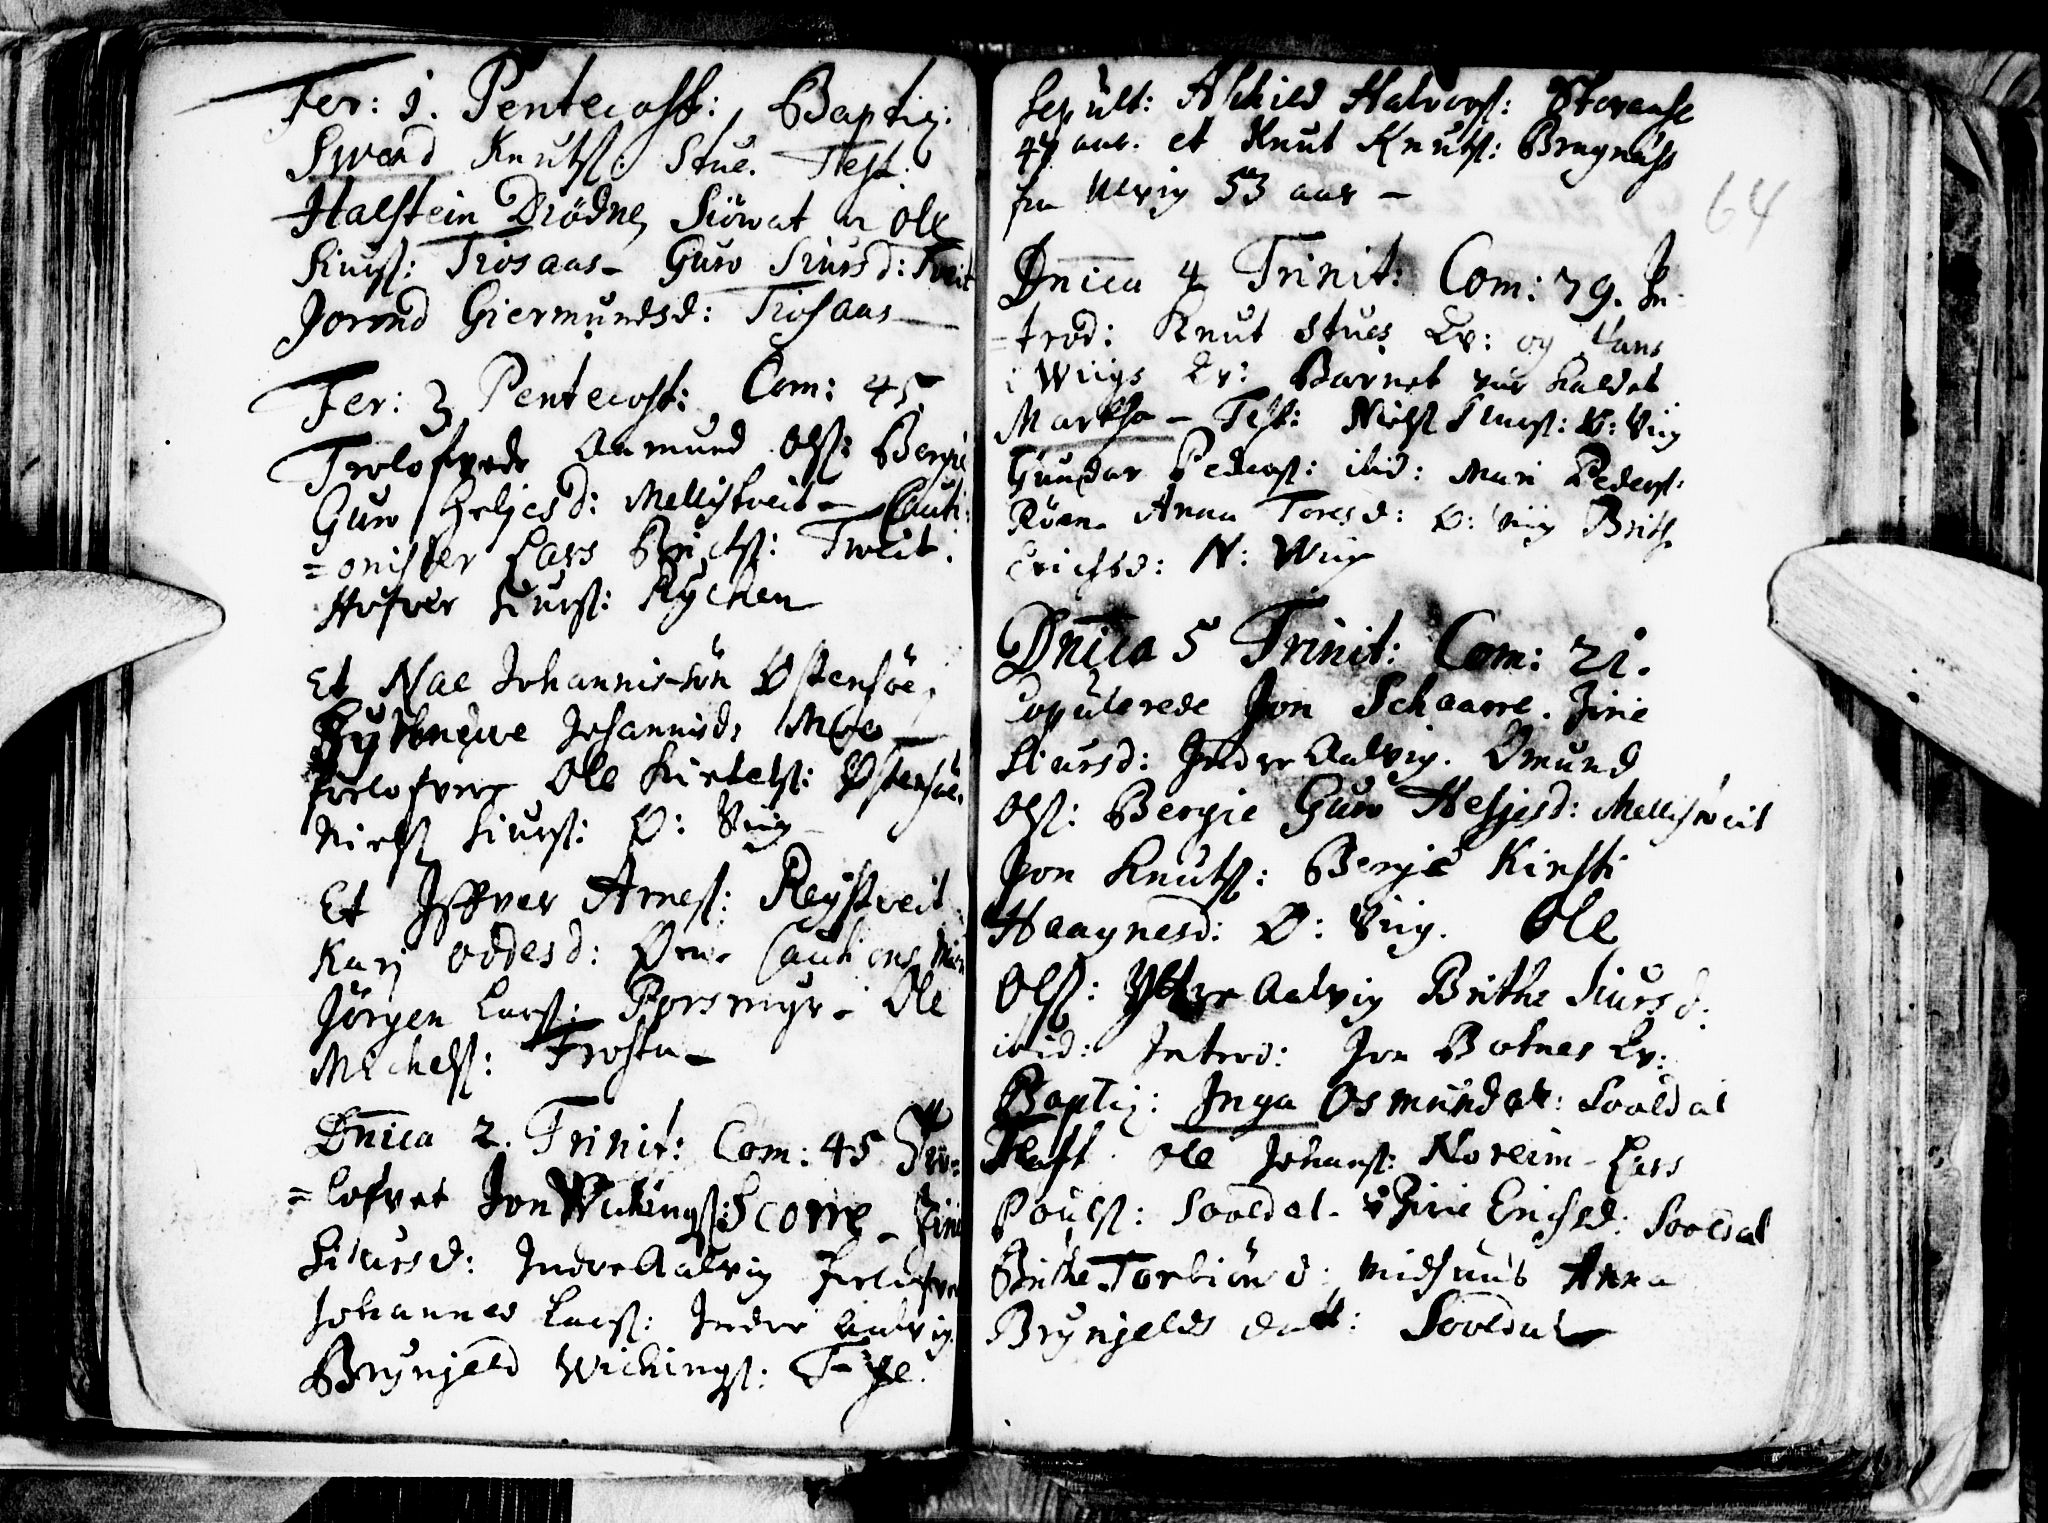 Fer: 1. Pentecost: Baptiz:
Swend Knuts: Stue. Test:
Halstein Diödne, Siöwat Ole
Siurs: Tiosaas - Guro Siursd: Tveit
Jorend Giermundsd: Tiosaas -
Fer: 3 Pentecost: Com: 45.
Trolofvede Aamund Ols: Bergie
Guro Heljesd: Mellistveit - Cauti:
=onister Lars Tweit.
Siurs: Rykken
Et Nae Johannis-sön Østensöe,
Johannisd: Moe
Ole Østensöe.
Niels Siurs: Ø: Viig -
Et Iffver Arnes: Reystveit
Kari Oddesd:
Jörgen Lars: Porsmyr - Ole
Michels: Frosta -
Dnica 2. Trinit: Com: 45 Tro=
=lofvet Jon Wichings: Scorre - Zirie
Siursd: Indre Aalvig
Johannes Lars: Indre Aalvig.
Brynjeld Wichings:
Sepult: Aschild Halvors:
47 aar. et Knut Knuts:
fra Ulvig 53 aar -
64
Dnica 4 Trinit: Com: 79. In-
=trod: Knut Stues Kv: og Hans
i Wiigs Kv: Barnet var kaldet
Martha - Test: Niels Siurs: Ø: Viig
Gundar Peders: ibid: Mari Peders:
Röen. Anna Toresd: Ø: Viig Brith
Erichsd: N: Wiig
Dnica 5 Trinit: Com: 21.
Copulerede Jon Schaarre. Zirie
Siursd: Indre Aalvig. Omund
Ols: Bergie Guro Heljesd: Mellistveit
Jon Knuts: Berje Kirsti
Haagnesd: Ø: Viig. Ole
Ols: Yttre Aalvig Brithe Siursd:
ibid: Introd: Jon Botnes Kv:
Baptiz: Inga Osmundsdt: Sooldal
Test. Ole Johans: Noreim - Lars
Pouls: Sooldal - Zirie Erichsd: Sooldal
Brithe Torbiörsd: Anna
Brynjelds datt: Sooldal